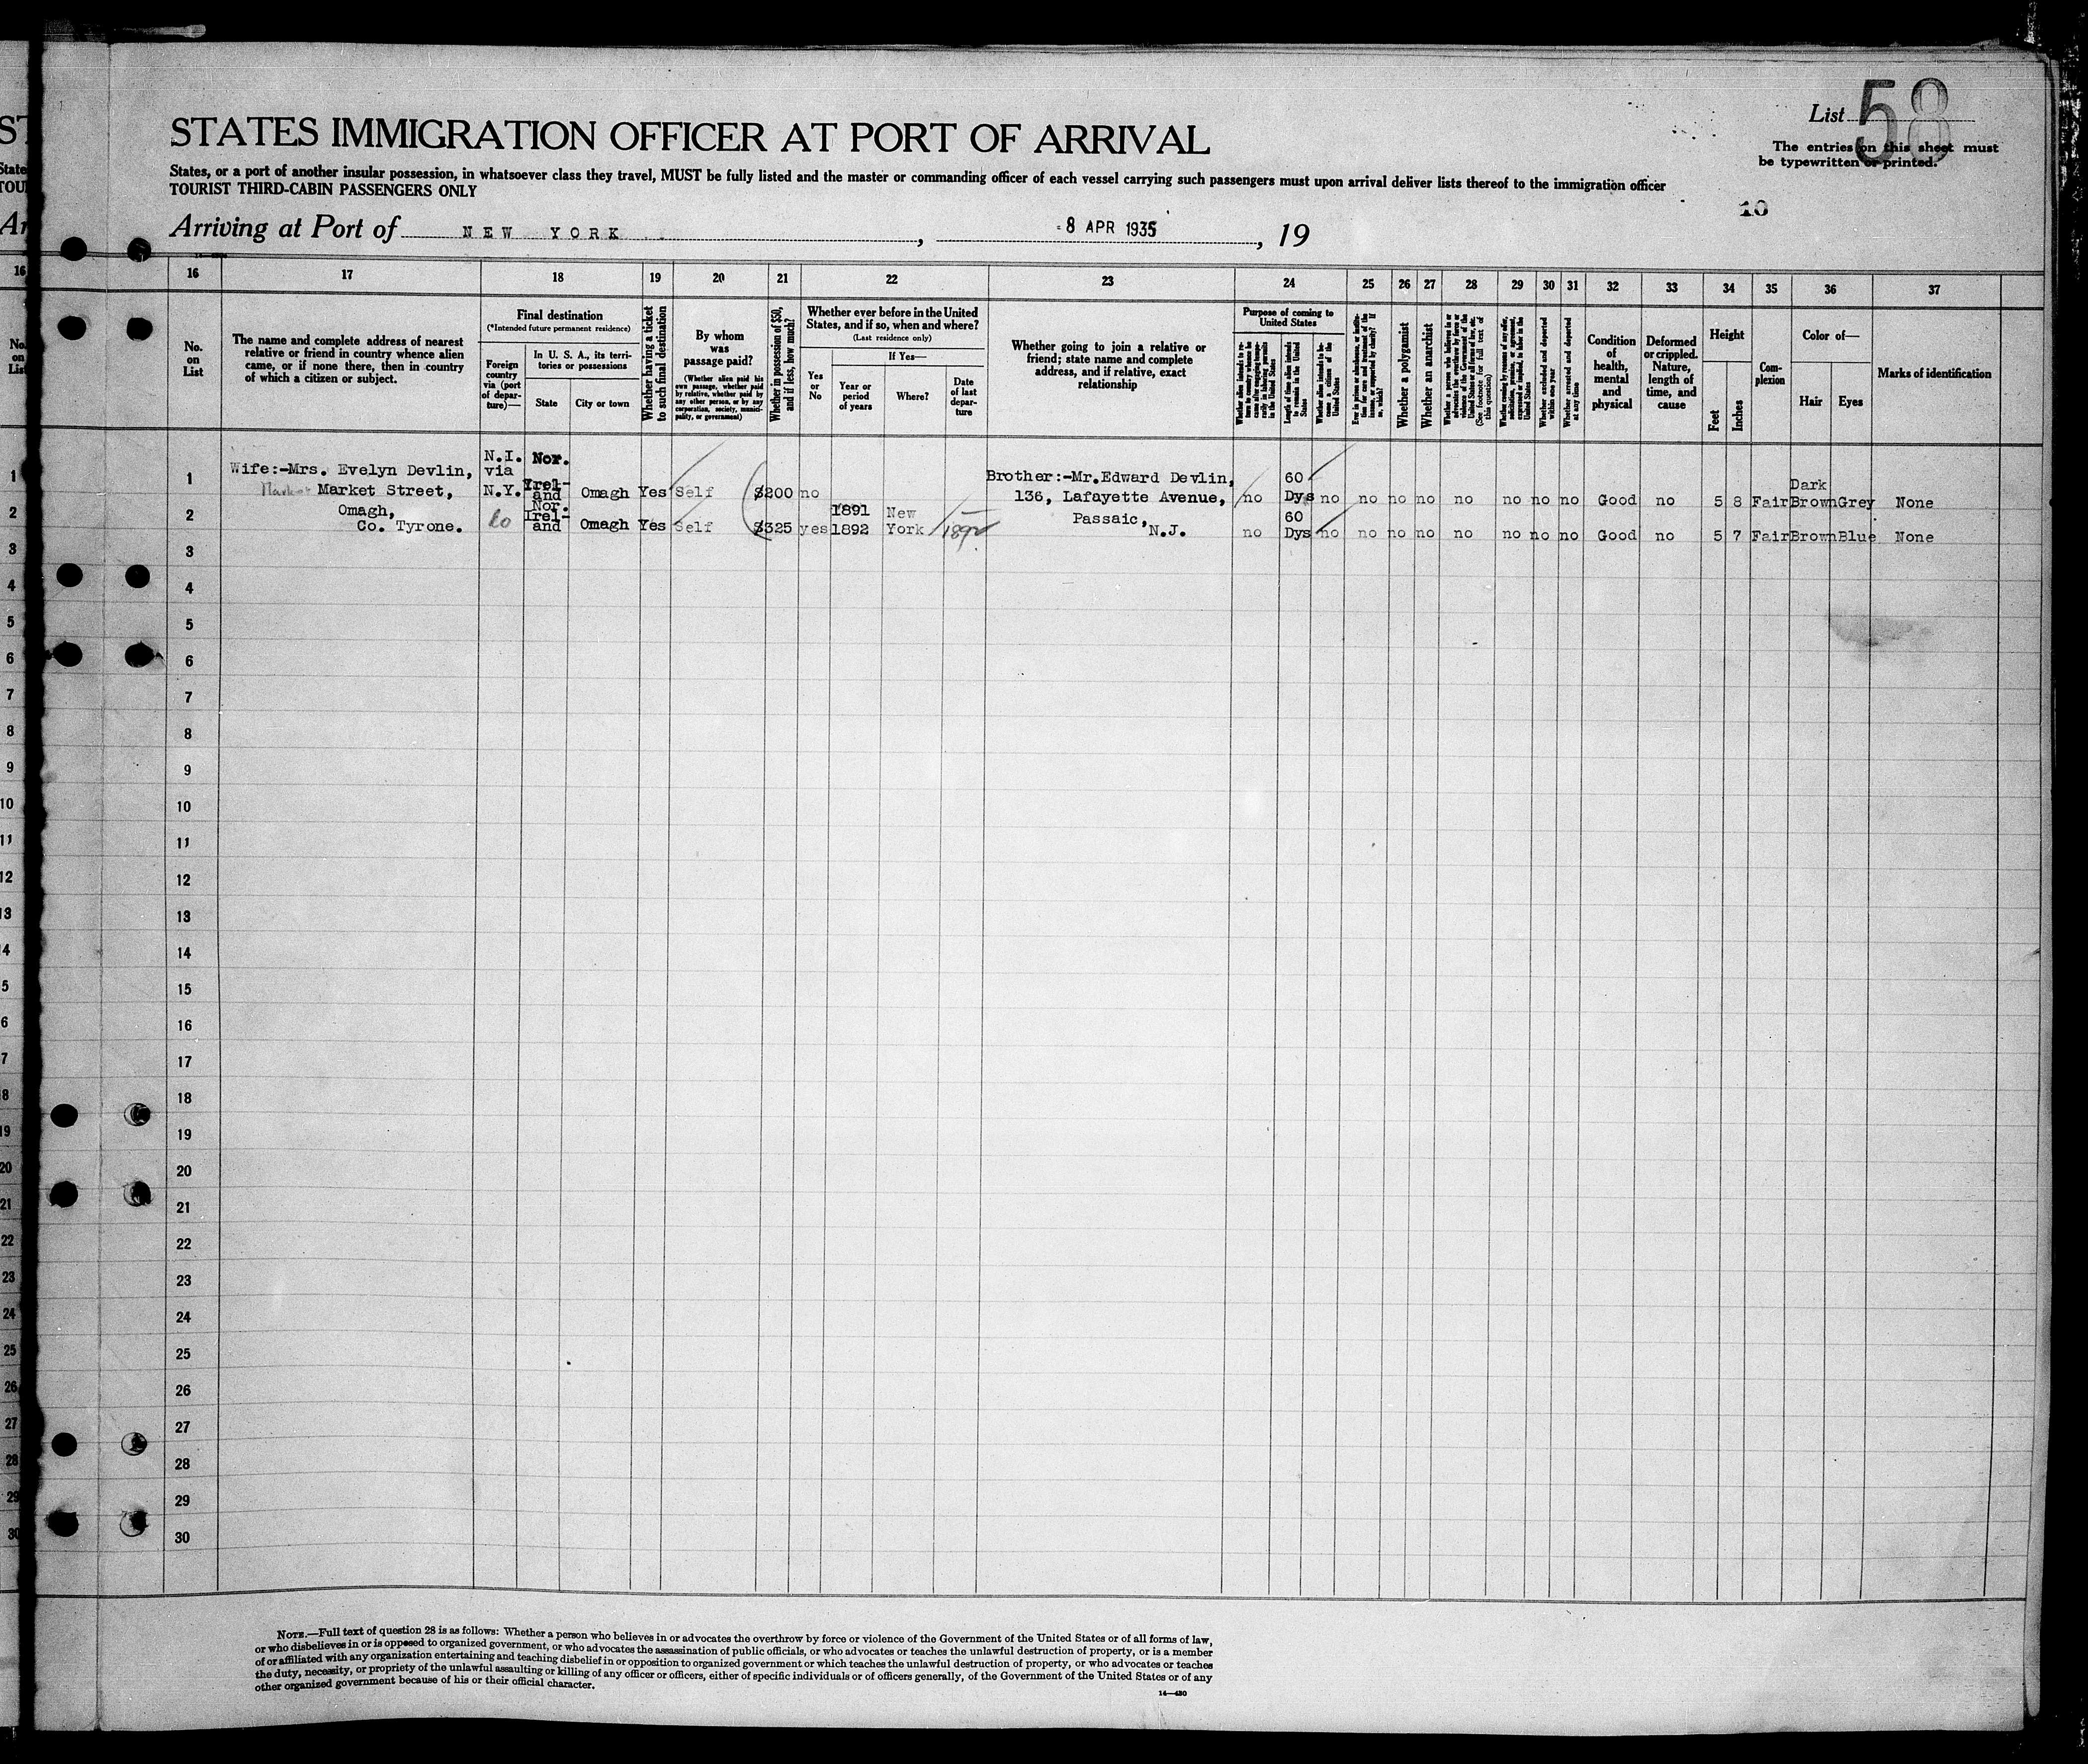 List 58
STATES IMMIGRATION OFFICER AT PORT OF ARRIVAL
The entries on this sheet must
be typewritten or printed.
States, or a port of another insular possession, in whatsoever class they travel, MUST be fully listed and the master or commanding officer of each vessel carrying such passengers must upon arrival deliver lists thereof to the immigration officer
TOURIST THIRD-CABIN PASSENGERS ONLY
10
Arriving at Port of NEW YORK, 8 APR 1935, 19
16 17 18 19 20 21 22 23 24 25 26 27 28 29 30 31 32 33 34 35 36 37
No. on List
The name and complete address of nearest
relative or friend in country whence alien
came, or if none there, then in country
of which a citizen or subject.
Final destination
(*Intended future permanent residence)
Foreign country via (port of departure)—
In U. S. A., its territories or possessions
State
City or town
Whether having a ticket to such final destination
By whom was passage paid?
(Whether alien paid his own passage, whether paid by relative, whether paid by any other person, or by any corporation, society, municipality, or government)
Whether in possession of $50, and if less, how much?
Whether ever before in the United
States, and if so, when and where?
(Last residence only)
Yes or No
If Yes—
Year or period of years
Where?
Date of last departure
Whether going to join a relative or
friend; state name and complete
address, and if relative, exact
relationship
Purpose of coming to
United States
Length of time alien intends to remain in the United States
Whether alien intends to become a citizen of the United States
Whether a polygamist
Whether an anarchist
(See footnote for full text of this question)
Whether arrested and deported at any time
Condition of health, mental and physical
Deformed or crippled. Nature, length of time, and cause
Height
Feet
Inches
Complexion
Color of—
Hair
Eyes
Marks of identification
1 Wife:-Mrs. Evelyn Devlin, N.I. via N.Y. Nor. Irel-and Omagh Yes Self $200 no Brother:-Mr.Edward Devlin, no 60 Dys no no no no no no no no Good no 5 8 Fair Dark Brown Grey None
Market Street, 136, Lafayette Avenue,
2 Omagh, Nor. Irel-and Omagh Yes Self $325 yes 1891 1892 New York 1892 Passaic, no 60 Dys no no no no no no no no Good no 5 7 Fair Brown Blue None
Co. Tyrone. N.J.
3
4
5
6
7
8
9
10
11
12
13
14
15
16
17
18
19
20
21
22
23
24
25
26
27
28
29
30
NOTE.—Full text of question 28 is as follows: Whether a person who believes in or advocates the overthrow by force or violence of the Government of the United States or of all forms of law,
or who disbelieves in or is opposed to organized government, or who advocates the assassination of public officials, or who advocates or teaches the unlawful destruction of property, or is a member
of or affiliated with any organization entertaining and teaching disbelief in or opposition to organized government or which teaches the unlawful destruction of property, or who advocates or teaches
the duty, necessity, or propriety of the unlawful assaulting or killing of any officer or officers, either of specific individuals or of officers generally, of the Government of the United States or of any
other organized government because of his or their official character.
14—430